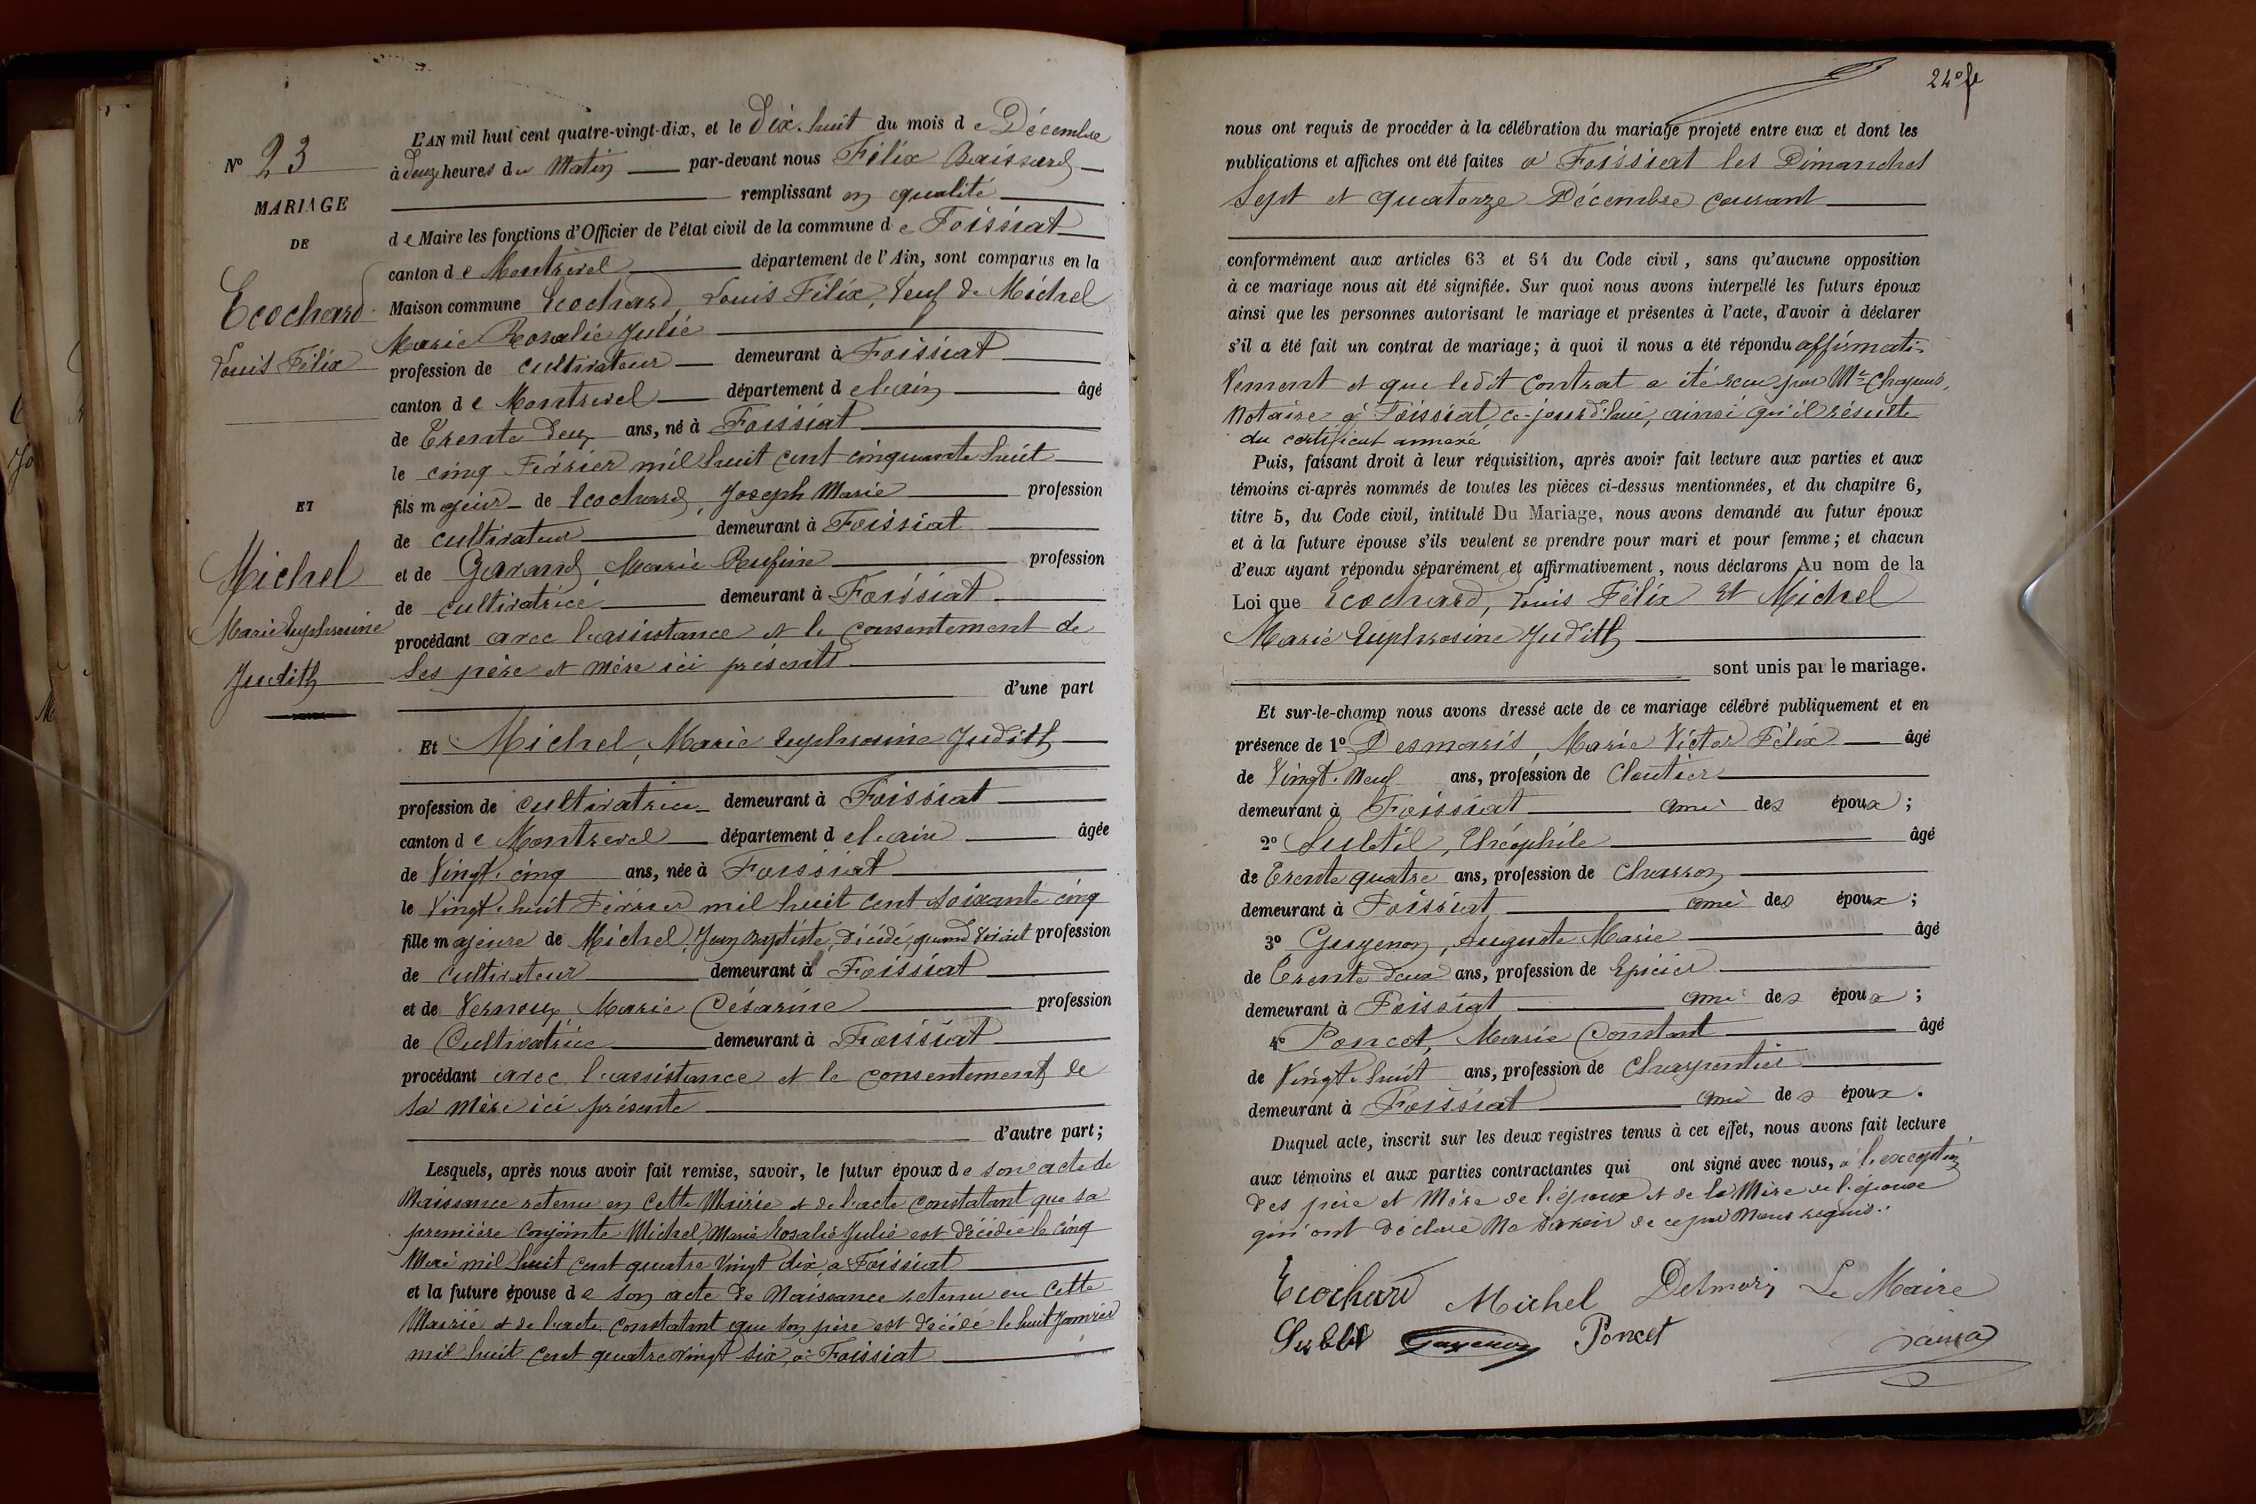 N° 23
MARIAGE
DE
Ecochard
Louis Félix
ET
Michel
Marie Euphrosine
Judith
L'AN mil huit cent quatre-vingt-dix, et le Dix-huit du mois de Décembre
à heures du Matin par-devant nous Félix
remplissant en qualité
de Maire les fonctions d'Officier de l'état civil de la commune de Foissiat
canton de Montrevel département de l'Ain, sont comparus en la
Maison commune Ecochard, Louis Félix, Veuf de Michel
Marie Rosalie Julie
profession de cultivateur demeurant à Foissiat
canton de Montrevel département de l'ain âgé
de Trente deux ans, né à Foissiat
le cinq Février mil huit cent cinquante huit
fils majeur de Ecochard, Joseph Marie profession
de cultivateur demeurant à Foissiat
et de Garand, Marie Rufine profession
de cultivatrice demeurant à Foissiat
procédant avec l'assistance et le consentement de
ses père et mère ici présents
d'une part
Et Michel, Marie Euphrosine Judith
profession de cultivatrice demeurant à Foissiat
canton de Montrevel département de l'ain âgée
de Vingt-cinq ans, née à Foissiat
le Vingt-huit Février mil huit cent soixante cinq
fille majeure de Michel, Jean Baptiste, décédé, quand vivait profession
de cultivateur demeurant à Foissiat
et de Vernoux Marie Césarine profession
de Cultivatrice demeurant à Foissiat
procédant avec l'assistance et le consentement de
sa mère ici présente
d'autre part;
Lesquels, après nous avoir fait remise, savoir, le futur époux de son acte de
Naissance retenu en cette Mairie et de l'acte constatant que sa
première conjointe Michel, Marie Rosalie Julie est décédée le cinq
Mai mil huit cent quatre vingt dix à Foissiat
et la future épouse de son acte de Naissance retenu en cette
Mairie et de l'acte constatant que son père est décédé le huit Janvier
mil huit cent quatre vingt six à Foissiat
24e f
nous ont requis de procéder à la célébration du mariage projeté entre eux et dont les
publications et affiches ont été faites à Foissiat les Dimanches
Sept et quatorze Décembre courant
conformément aux articles 63 et 64 du Code civil, sans qu'aucune opposition
à ce mariage nous ait été signifiée. Sur quoi nous avons interpellé les futurs époux
ainsi que les personnes autorisant le mariage et présentes à l'acte, d'avoir à déclarer
s'il a été fait un contrat de mariage; à quoi il nous a été répondu affirmati-
vement et que ledit contrat a été reçu par Me
Notaire à Foissiat ce-jourd'hui, ainsi qu'il résulte
du certificat annexé
Puis, faisant droit à leur réquisition, après avoir fait lecture aux parties et aux
témoins ci-après nommés de toutes les pièces ci-dessus mentionnées, et du chapitre 6,
titre 5, du Code civil, intitulé Du Mariage, nous avons demandé au futur époux
et à la future épouse s'ils veulent se prendre pour mari et pour femme; et chacun
d'eux ayant répondu séparément et affirmativement, nous déclarons Au nom de la
Loi que Ecochard, Louis Félix Et Michel
Marie Euphrosine Judith
sont unis par le mariage.
Et sur-le-champ nous avons dressé acte de ce mariage célébré publiquement et en
présence de 1° Desmaris, Marie Victor Félix âgé
de Vingt-Neuf ans, profession de Cloutier
demeurant à Foissiat ami des époux;
2° Subtil, Théophile âgé
de Trente quatre ans, profession de Charron
demeurant à Foissiat ami des époux;
3° Guyenon, Auguste Marie âgé
de Trente deux ans, profession de Epicier
demeurant à Foissiat ami des époux;
4° Poncet, Marie Constant âgé
de Vingt-huit ans, profession de Charpentier
demeurant à Foissiat ami des époux.
Duquel acte, inscrit sur les deux registres tenus à cet effet, nous avons fait lecture
aux témoins et aux parties contractantes qui ont signé avec nous, à l'exception
des père et Mère de l'époux et de la Mère de l'épouse
qui ont déclaré Ne savoir de ce par Nous requis.
Ecochard Michel Le Maire
Subtil Guyenon Poncet